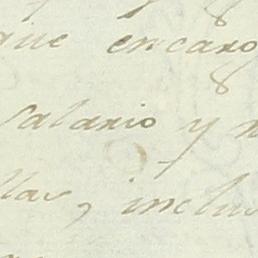 que en caso
salario y
llas, inclus